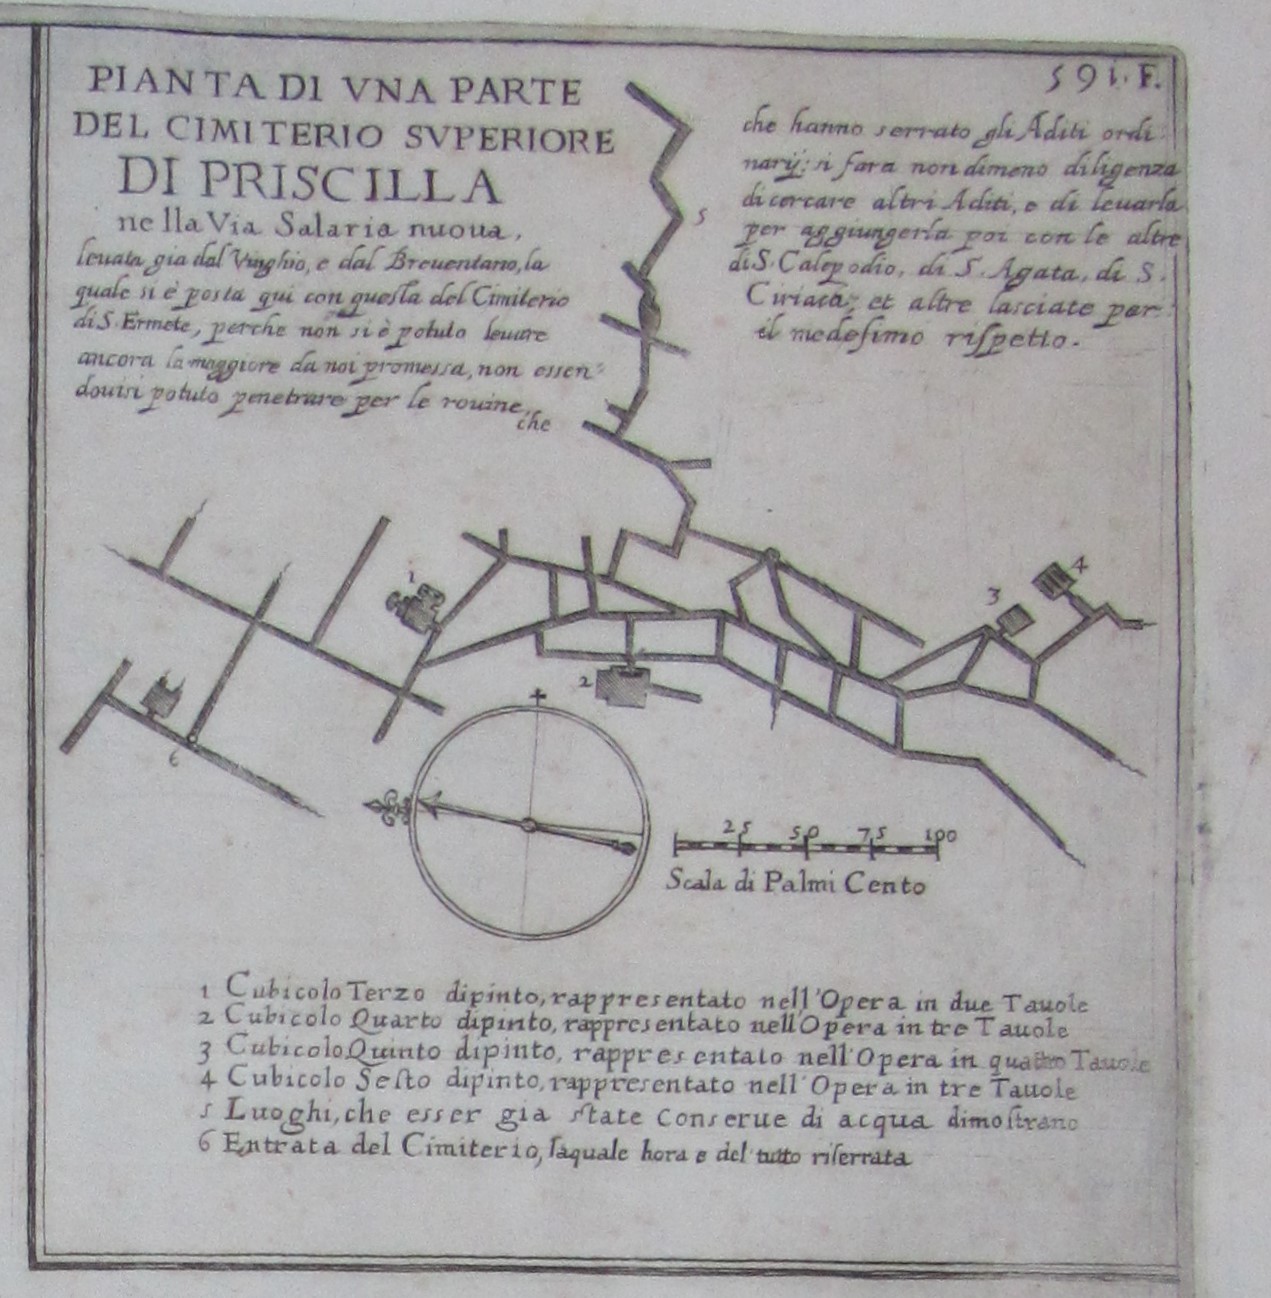 PIANTA DI VNA PARTE
DEL CIMITERIO SVPERIORE
DI PRISCILLA
nella Via Salaria nuoua,
leuata gia dal Vinghio, e dal Breuentano, la
quale si è posta qui con questa del Cimiterio
di S. Ermete, perche non si è potuto leuare
ancora la maggiore da noi promessa, non essen:
douisi potuto penetrare per le rouine,
che
591. F.
che hanno serrato gli Aditi ordi:
narij: si fara nondimeno diligenza
di cercare altri Aditi, e di leuarla
per aggiungerla poi con le altre
di S. Calepodio, di S. Agata, di S.
Ciriaca, et altre lasciate per
il medesimo rispetto.
5
1
4
3
2
6
25 50 75 100
Scala di Palmi Cento
1 Cubicolo Terzo dipinto, rappresentato nell'Opera in due Tauole
2 Cubicolo Quarto dipinto, rappresentato nell'Opera in tre Tauole
3 Cubicolo Quinto dipinto, rappresentato nell'Opera in quattro Tauole
4 Cubicolo Sesto dipinto, rappresentato nell'Opera in tre Tauole
5 Luoghi, che esser gia state conserue di acqua dimostrano
6 Entrata del Cimiterio, laquale hora e del tutto riserrata